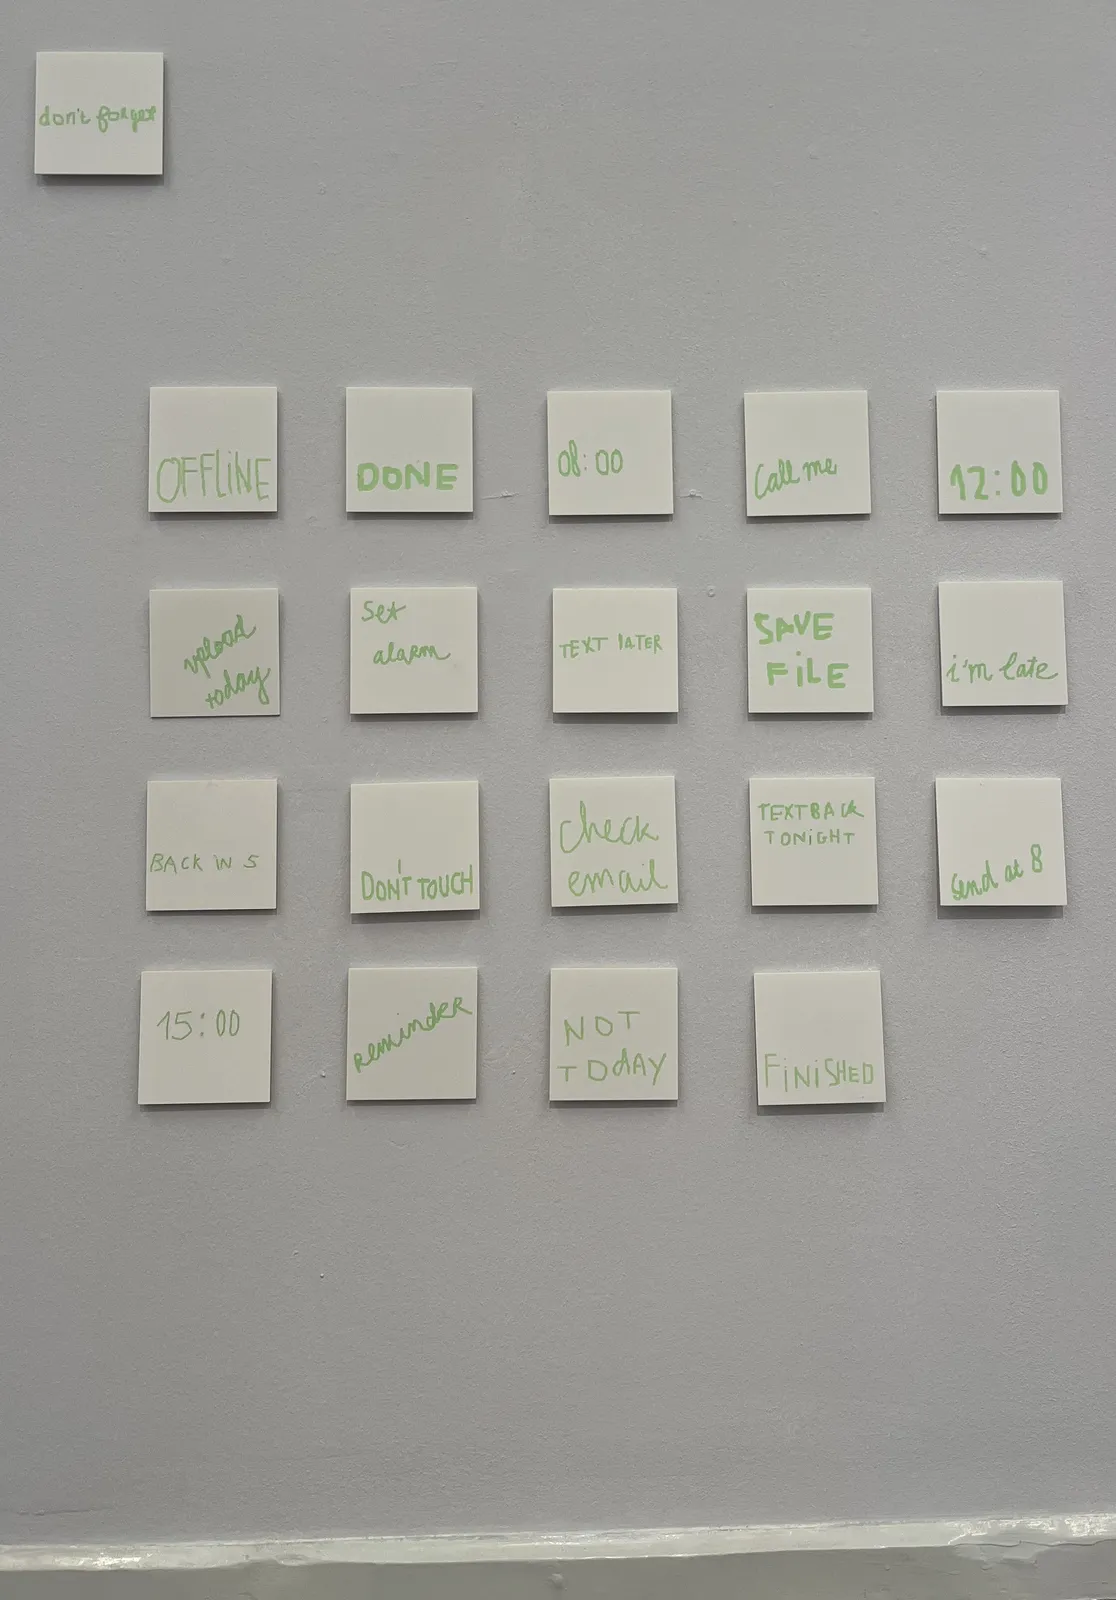 don't forget
OFFLiNE
DONE
08:00
Call me
12:00
upload
today
Set
alarm
TEXT lATER
SAVE
FiLE
i'm late
BACK IN 5
DON'T TOUCH
check
email
TEXT BACK
TONIGHT
Send at 8
15:00
REMINDER
NOT
TODAY
FiNiSHED